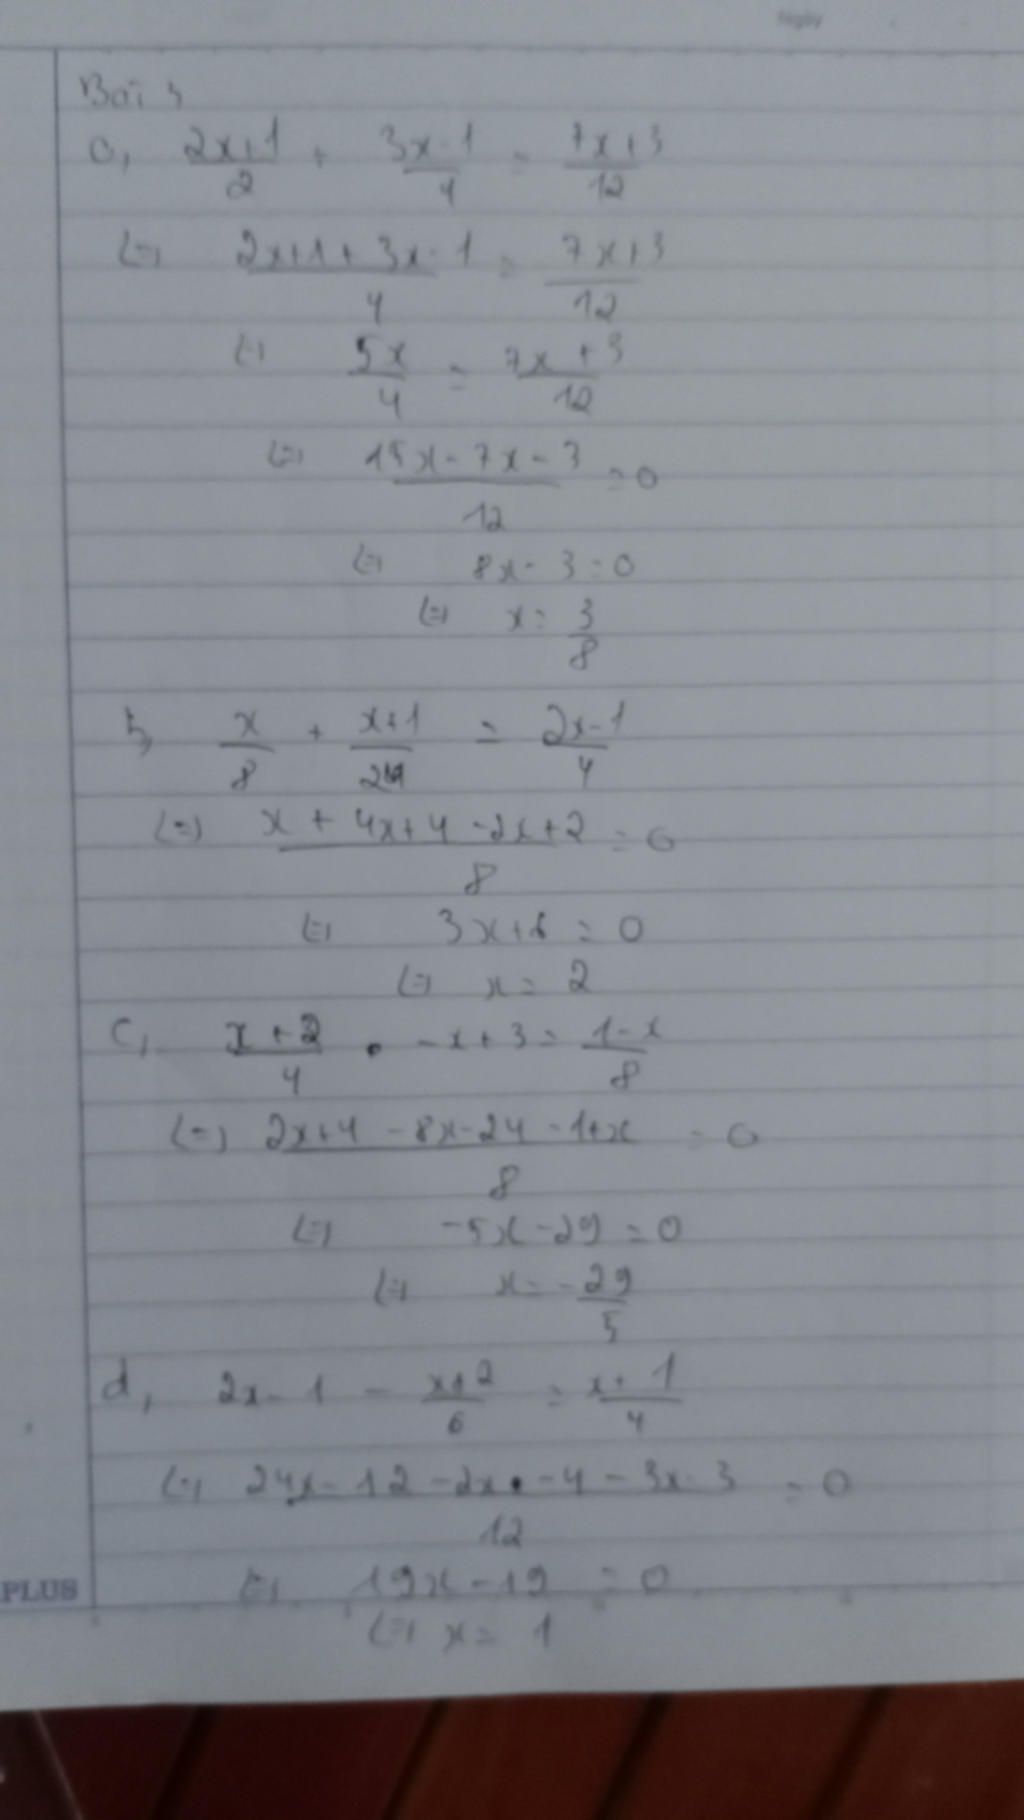 Ngày
Bài 3
a, (2x+1)/2 + (3x-1)/4 = (7x+3)/12
(=) (2x+1+3x-1)/4 = (7x+3)/12
(=) 5x/4 = (7x+3)/12
(=) (15x-7x-3)/12 = 0
(=) 8x-3=0
(=) x = 3/8
b, x/8 + (x+1)/2 = (2x-1)/4
(=) (x+4x+4-2x+2)/8 = 0
(=) 3x+6 = 0
(=) x = 2
c, (x+2)/4 -x+3 = (1-x)/8
(=) (2x+4-8x-24-1+x)/8 = 0
(=) -5x-29=0
(=) x=-29/5
d, 2x-1 - (x+2)/6 = (x+1)/4
(=) (24x-12-2x-4-3x-3)/12 = 0
(=) 19x-19 = 0
PLUS
(=) x = 1